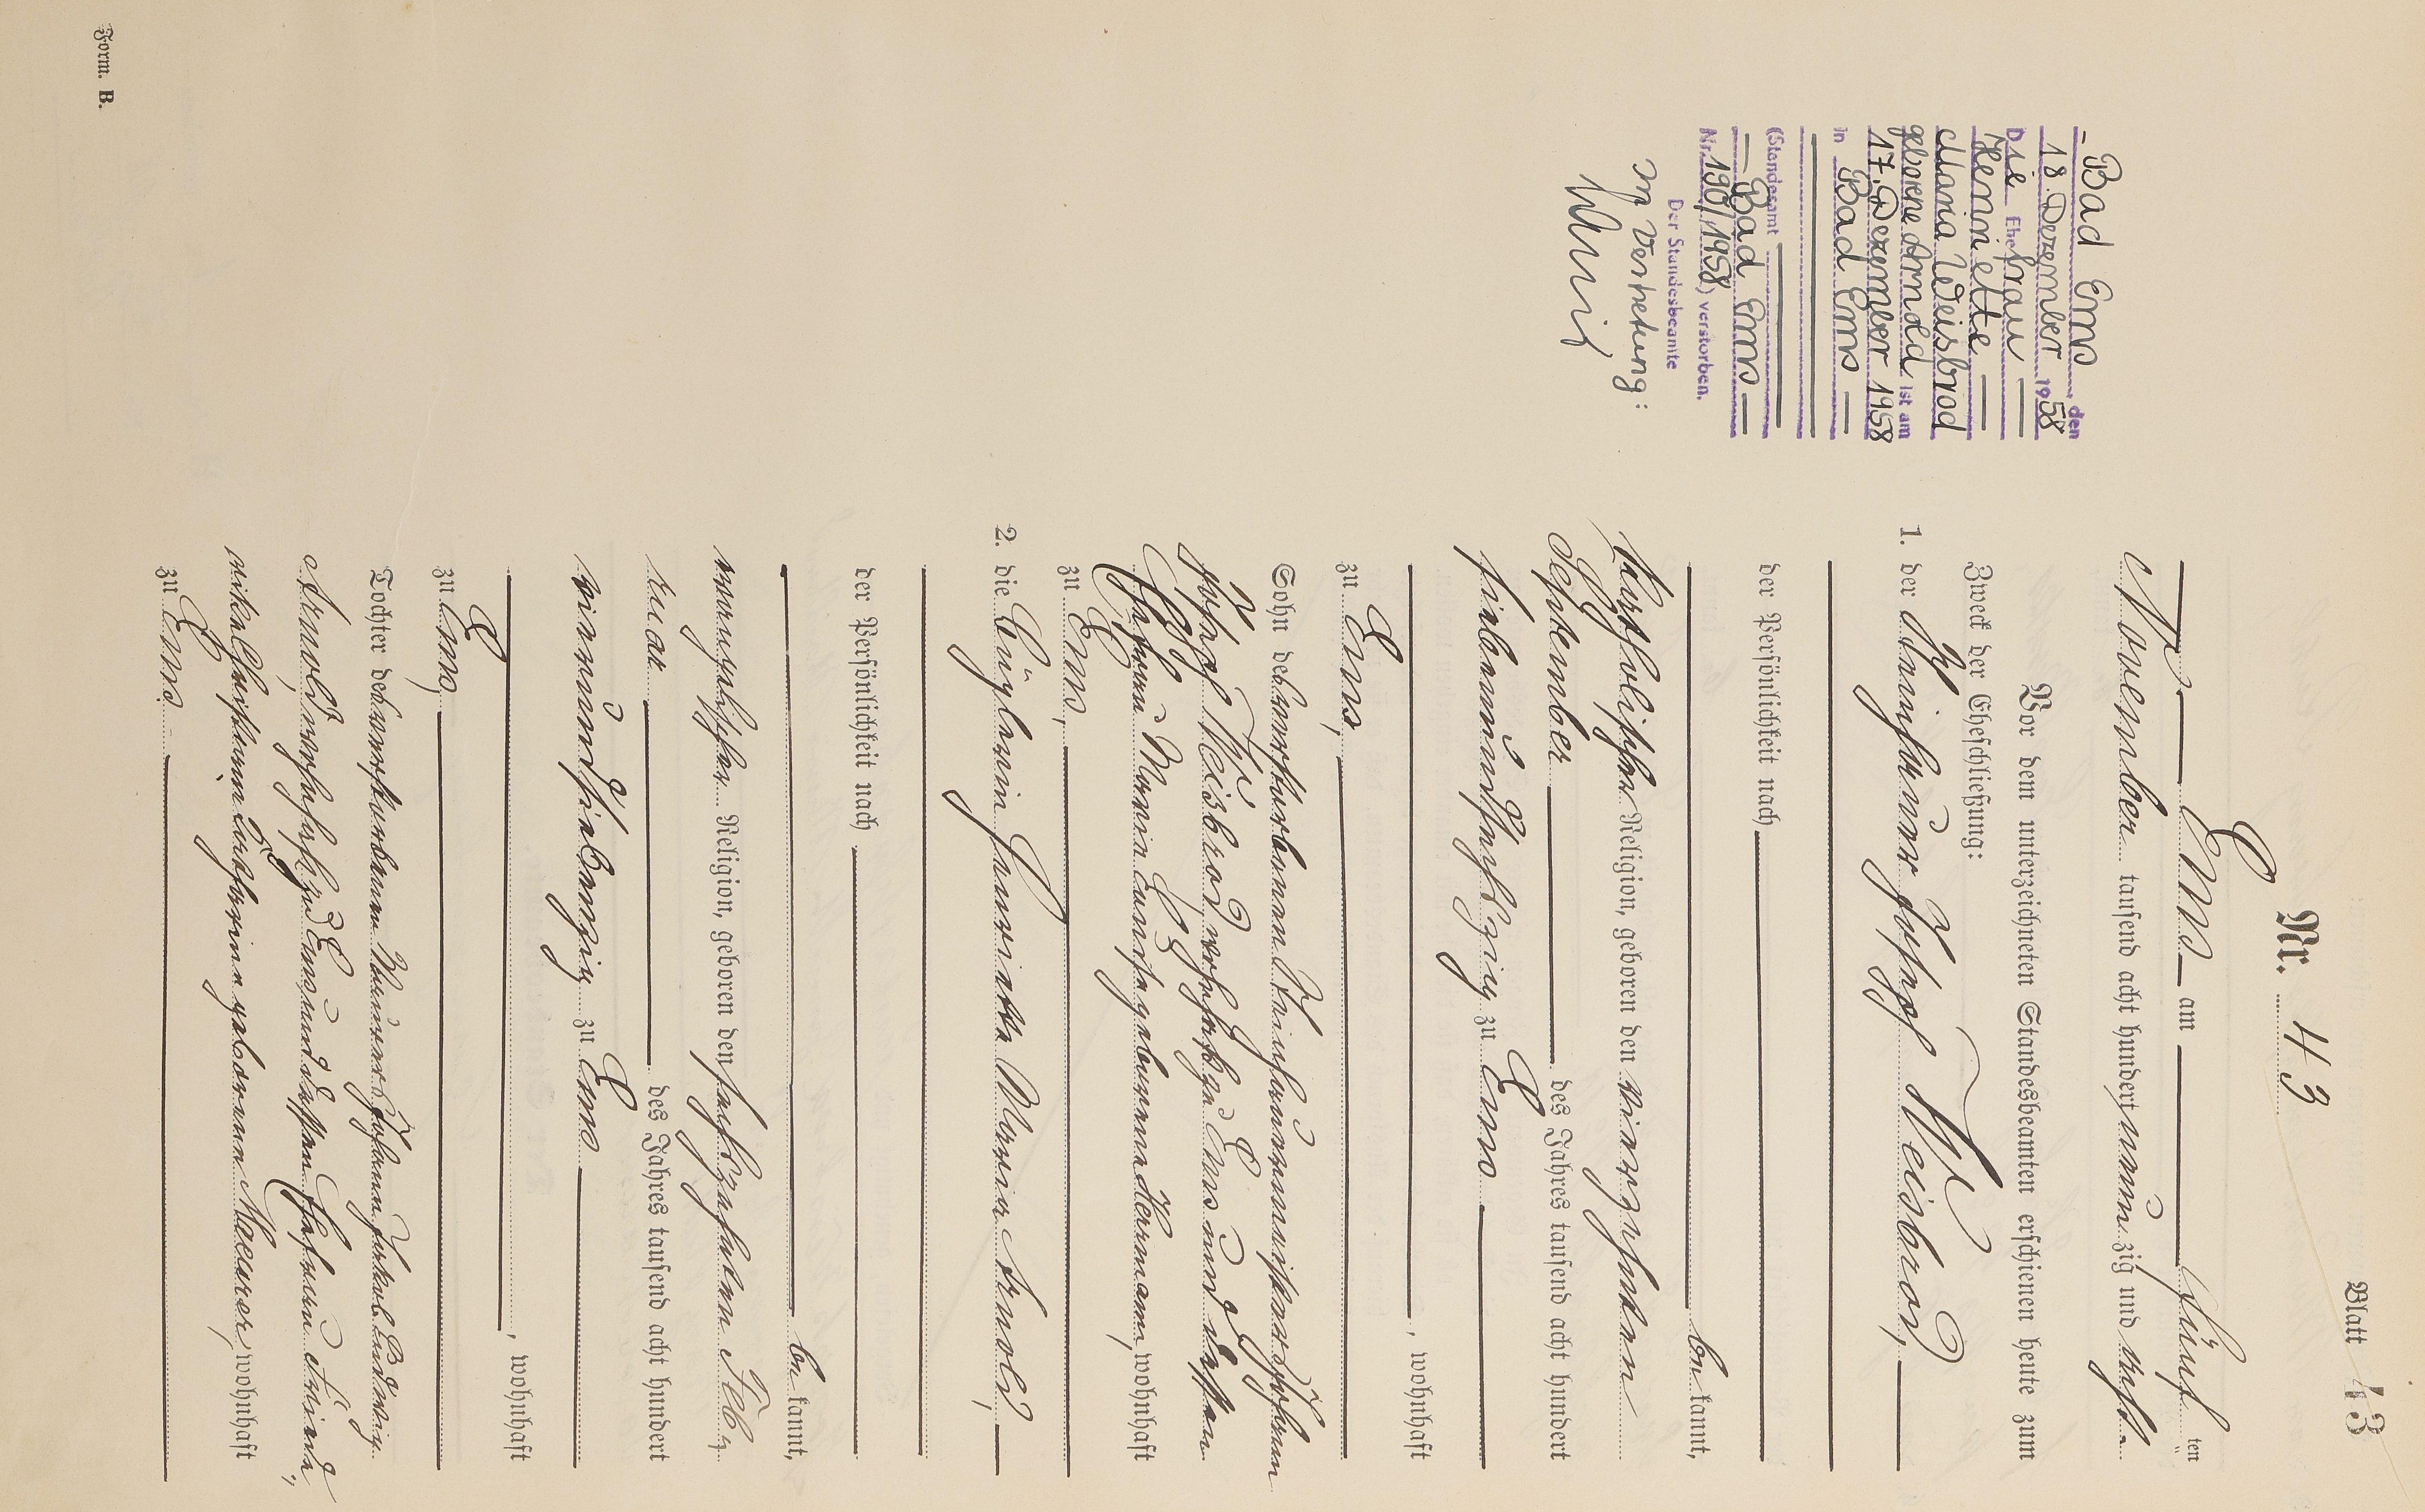 Blatt 43
Nr. 43
Ems am fünf ten
November tausend acht hundert neun zig und acht
Vor dem unterzeichneten Standesbeamten erschienen heute zum
Zweck der Eheschließung:
1. der Steinhauer Josef Weisbrod,
der Persönlichkeit nach
be kannt,
katholischer Religion, geboren den vierzehnten
September des Jahres tausend acht hundert
siebenundsechszig zu Ems
, wohnhaft
zu Ems,
Sohn des verstorbenen Steinhauermeisters Johann
Josef Weisbrod, wohnhaft zu Ems und dessen
Ehefrau Maria geborene Hermann, wohnhaft
zu Ems,
2. die Büglerin Henriette Maria Arnold,
der Persönlichkeit nach
be kannt,
evangelischer Religion, geboren den sechszehnten Feb-
ruar des Jahres tausend acht hundert
vierundsiebenzig zu Ems
, wohnhaft
zu Ems,
Tochter des verstorbenen Maurers Johann Jakob Ludwig
Arnold, wohnhaft zu Ems und dessen Ehefrau
Katharina geborene Maurer, wohnhaft
zu Ems.
Bad Ems, den
18. Dezember 1958
Die Ehefrau
Henriette
Maria Weisbrod
geborene Arnold ist am
17. Dezember 1958
in Bad Ems
(Standesamt
Bad Ems
Nr. 190/1958) verstorben.
Der Standesbeamte
In Vertretung:
Form. B.